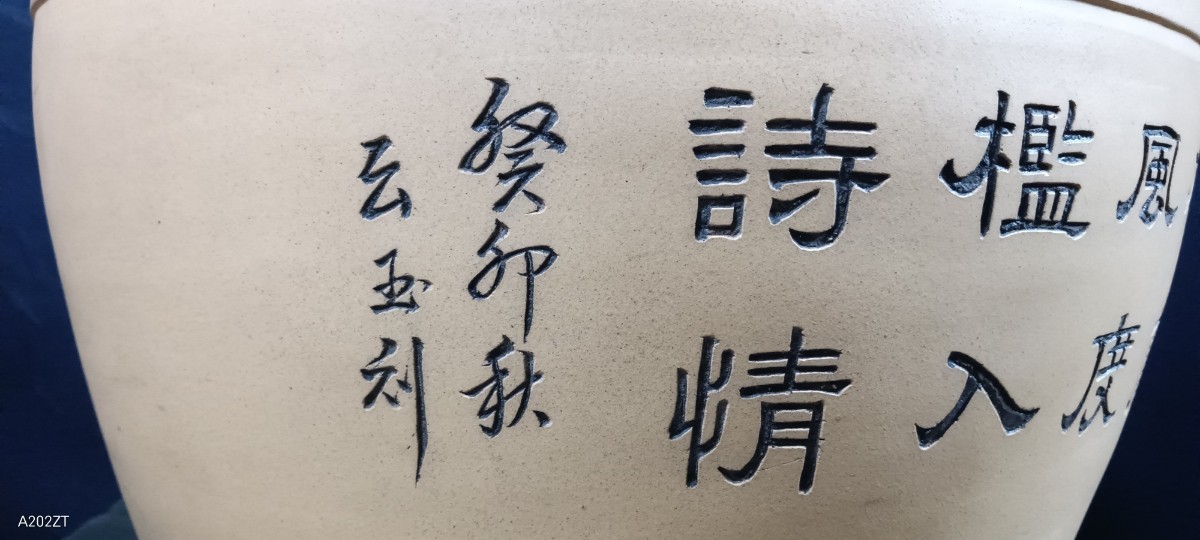 風度
檻入
詩情
癸卯秋
云玉刻
A202ZT